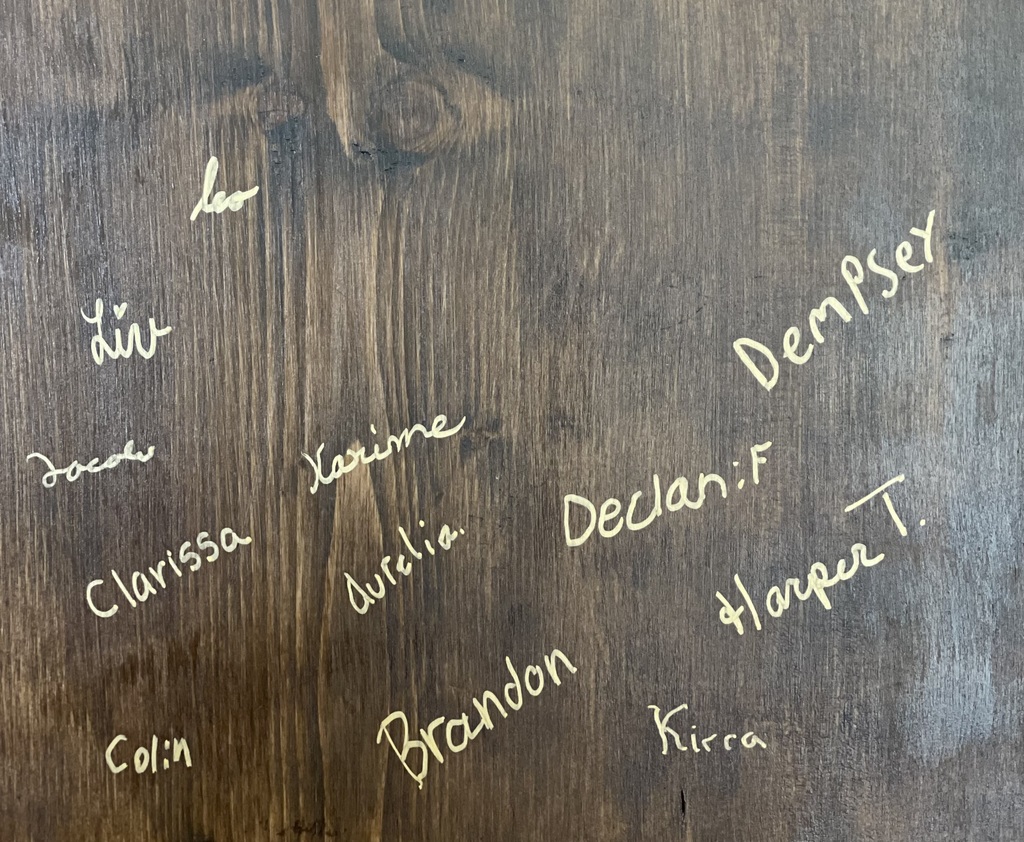 Leo
Liv
Dempsey
Jacob
Karime
Declan:F
Clarissa
Aurelia.
Harper T.
Colin
Brandon
Kirra